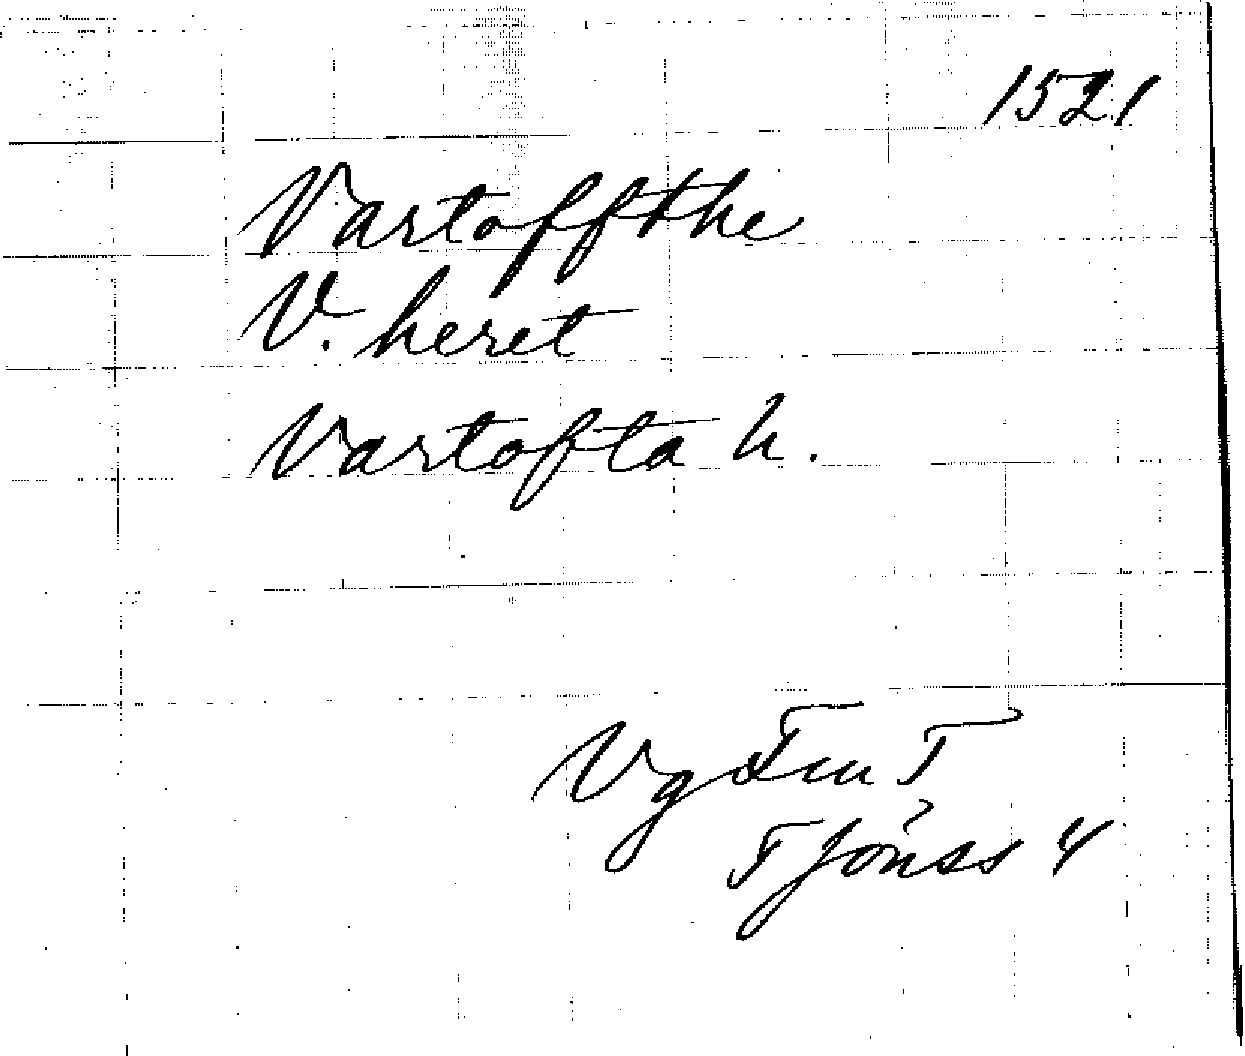 1521
Vartoffthe
V. heret
Vartofta h.
Vg Fru T
T Jönss 4